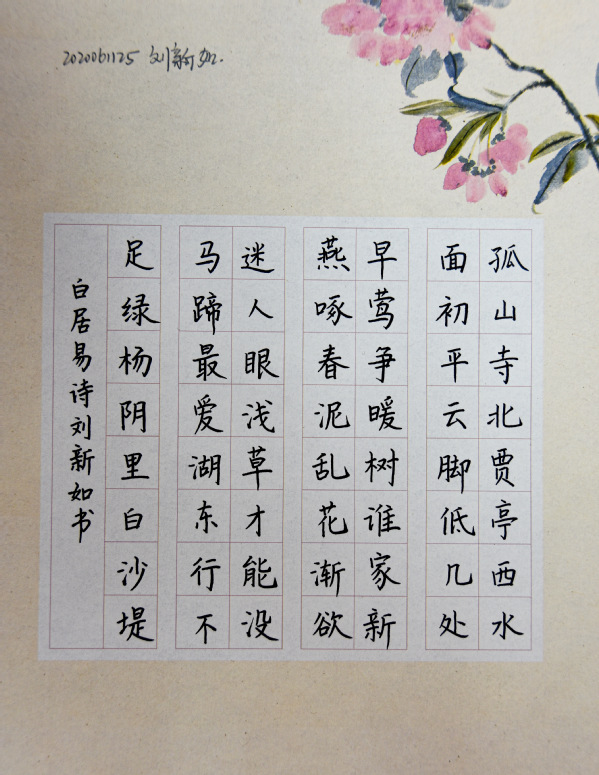 2020061125 刘新如.
孤山寺北贾亭西水
面初平云脚低几处
早莺争暖树谁家新
燕啄春泥乱花渐欲
迷人眼浅草才能没
马蹄最爱湖东行不
足绿杨阴里白沙堤
白居易诗刘新如书